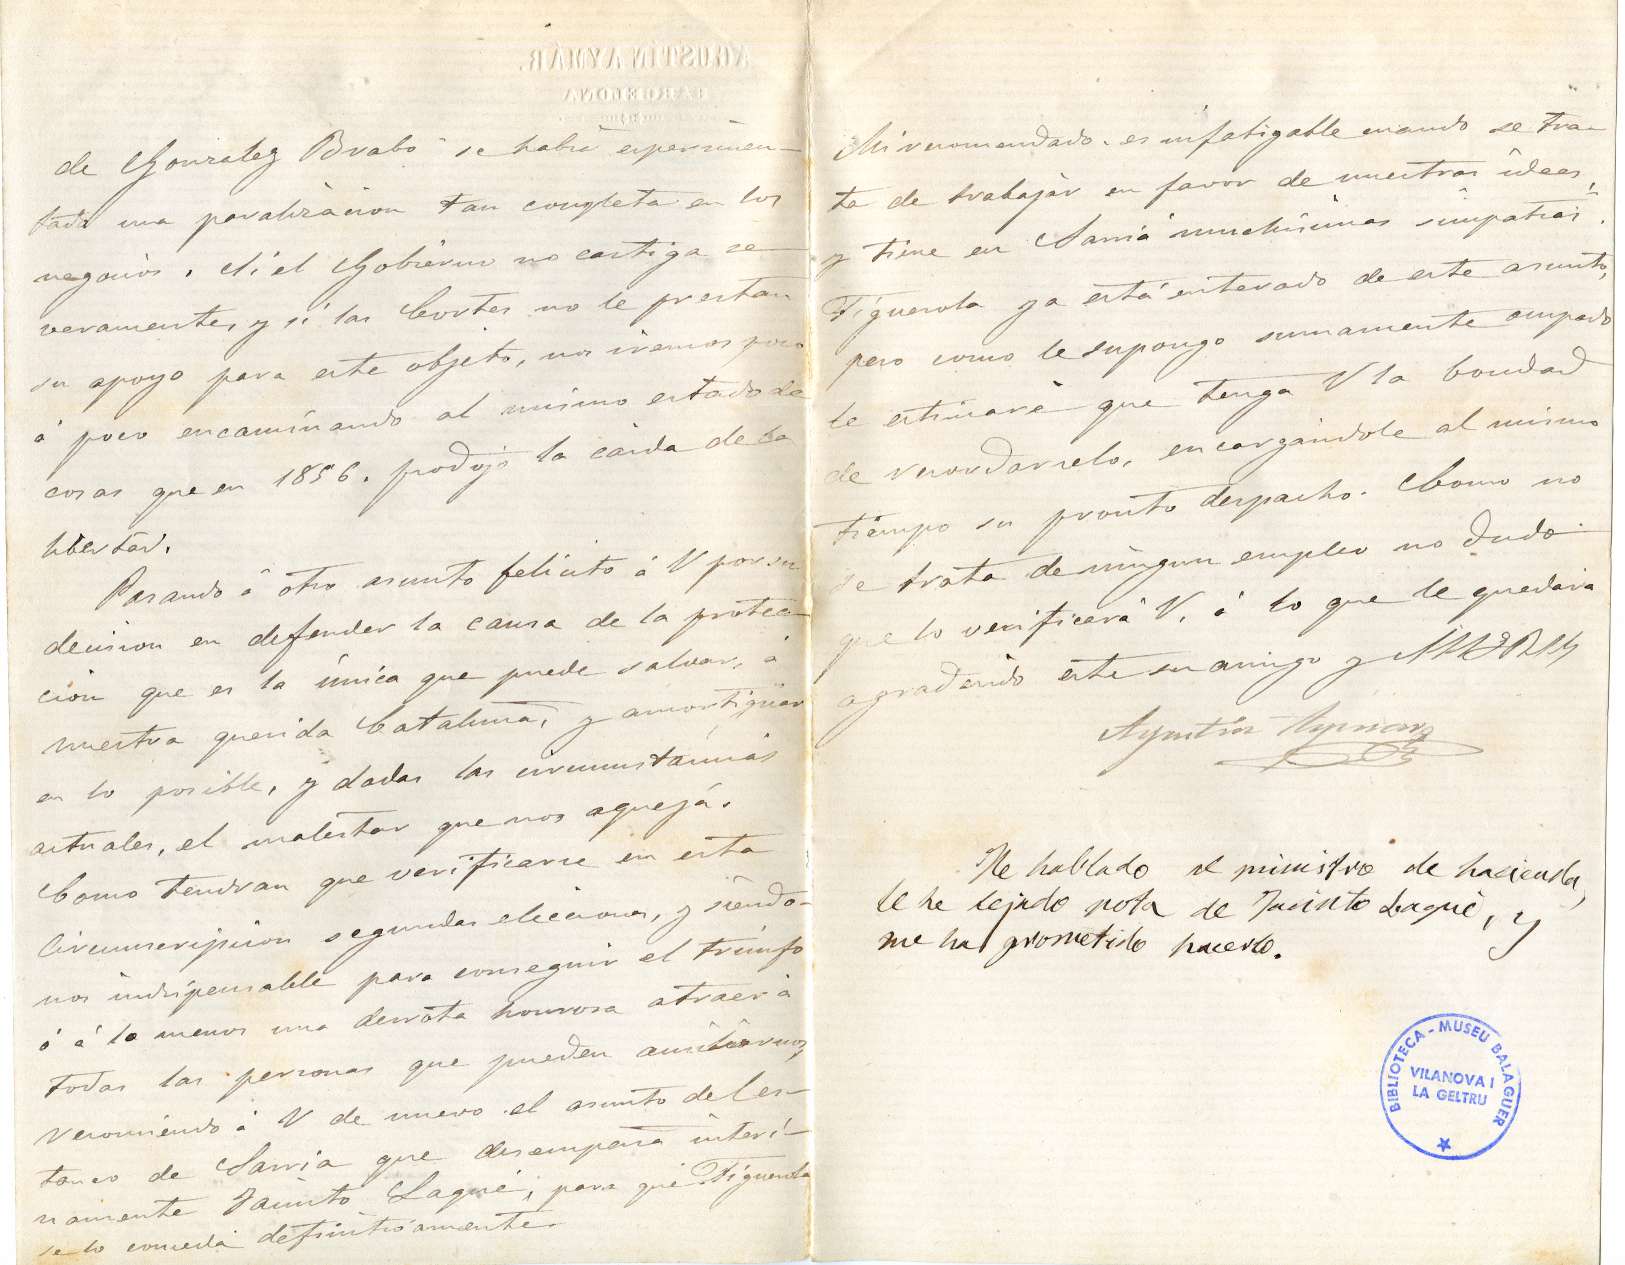 AGUSTIN AYMAR.
BARCELONA
de Gonzalez Brabo se habia esperimen-
tado una paralizacion tan completa en los
negocios. Si el Gobierno no castiga se-
veramente, y si las Cortes no le prestan
su apoyo para este objeto, nos iremos poco
á poco encaminando al mismo estado de
cosas que en 1856. produjo la caida de la
libertad.
Pasando á otro asunto felicito á V por su
decision en defender la causa de la protec-
cion que es la única que puede salvar, á
nuestra querida Cataluña, y amortiguar
en lo posible, y dadas las circumstáncias
actuales, el malestar que nos aquejá.
Como tendran que verificarse en esta
Circumscripcion segundas elecciones, y siéndo-
nos indispensable para conseguir el triunfo
ó á lo menos una derrota honrosa atraer á
todas las personas que pueden ausiliarnos,
recomiendo á V de nuevo el asunto del es-
tanco de Sarria que desempeña interi-
namente Jacinto Lagué, para qué Figuerola
se lo conceda definitivamente.
Mi recomendado es infatigable cuando se tra-
ta de trabajar en favor de nuestras ideas,
y tiene en Sarriá muchisimas simpatias.
Figuerola ya está enterado de este asunto,
pero como le supongo sumamente ocupado
le estimaré que tenga V la bondad
de recordarselo, encargándole al mismo
tiempo su pronto despacho. Como no
se trata de ningun empleo no dudo
que lo verificará V, á lo que le quedara
agradecido este su amigo y
Agustin Aymar
He hablado al ministro de hacienda,
le he dejado nota de Jacinto Lagué, y
me ha prometido hacerlo.
BIBLIOTECA - MUSEU BALAGUER
VILANOVA I
LA GELTRU